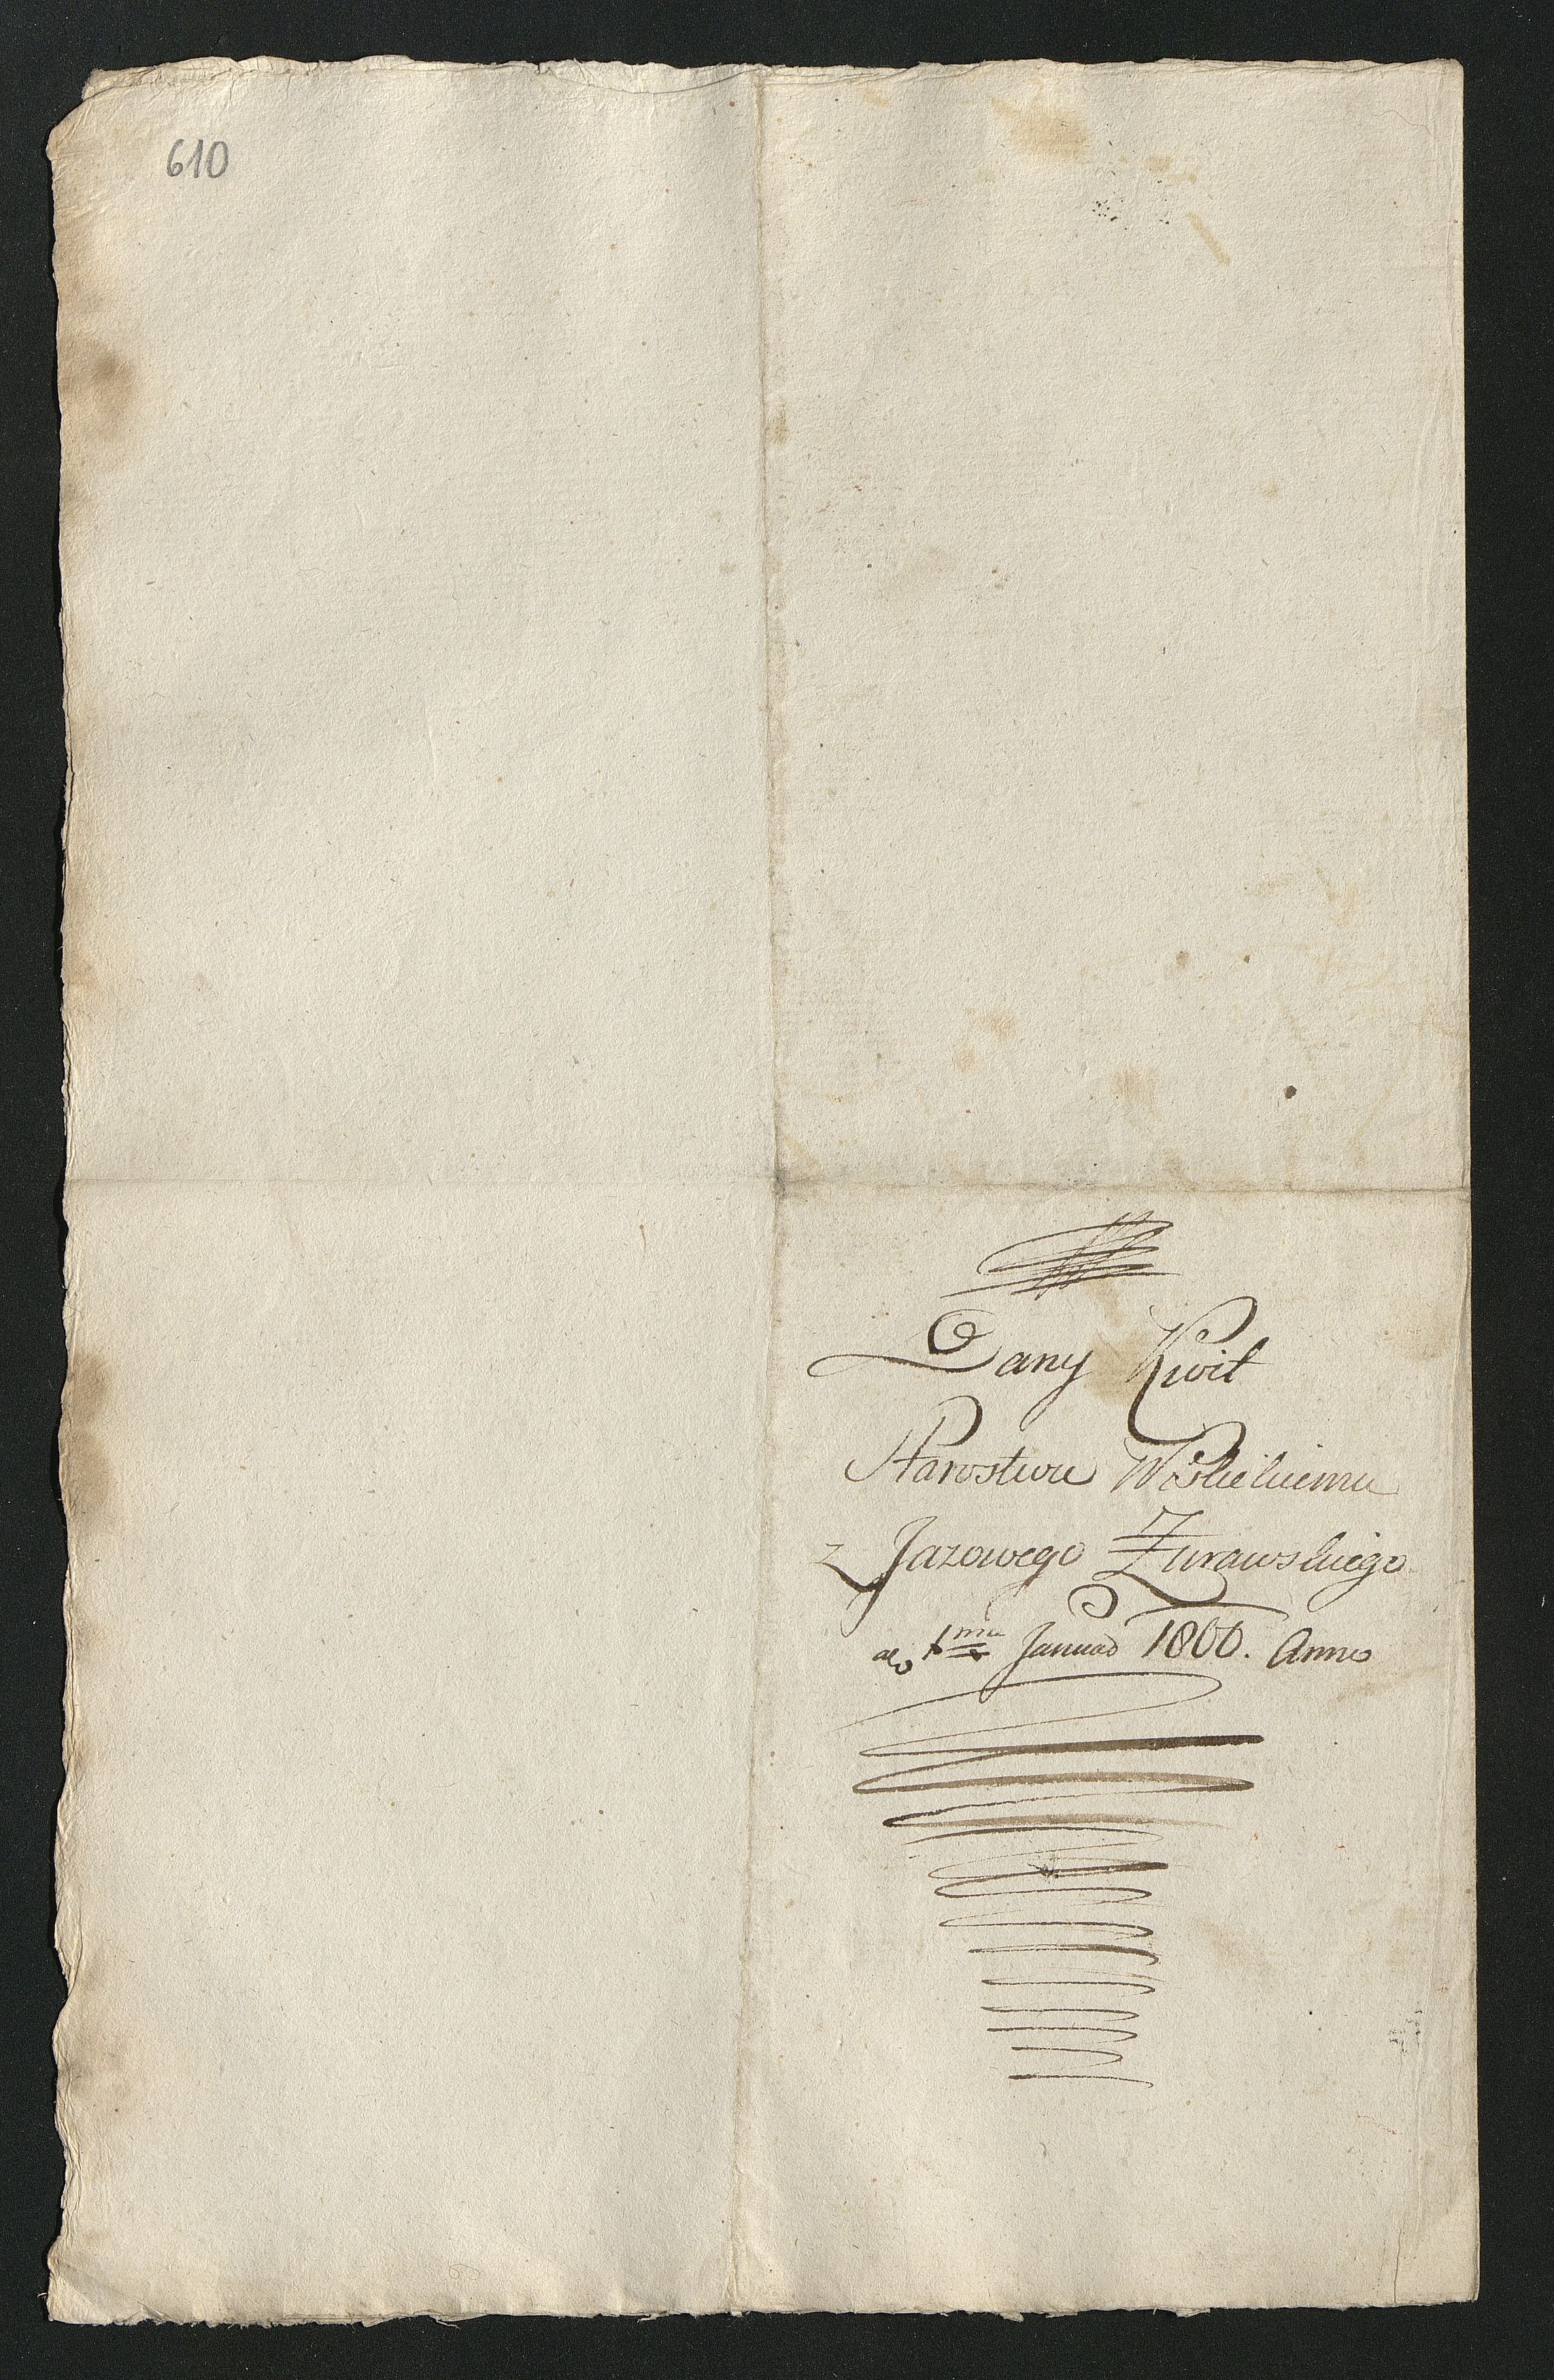 610
Dany Kwit
Starostwu Wiślickiemu
z Jazowego Żurawskiego
1ma Januar 1800. Anno